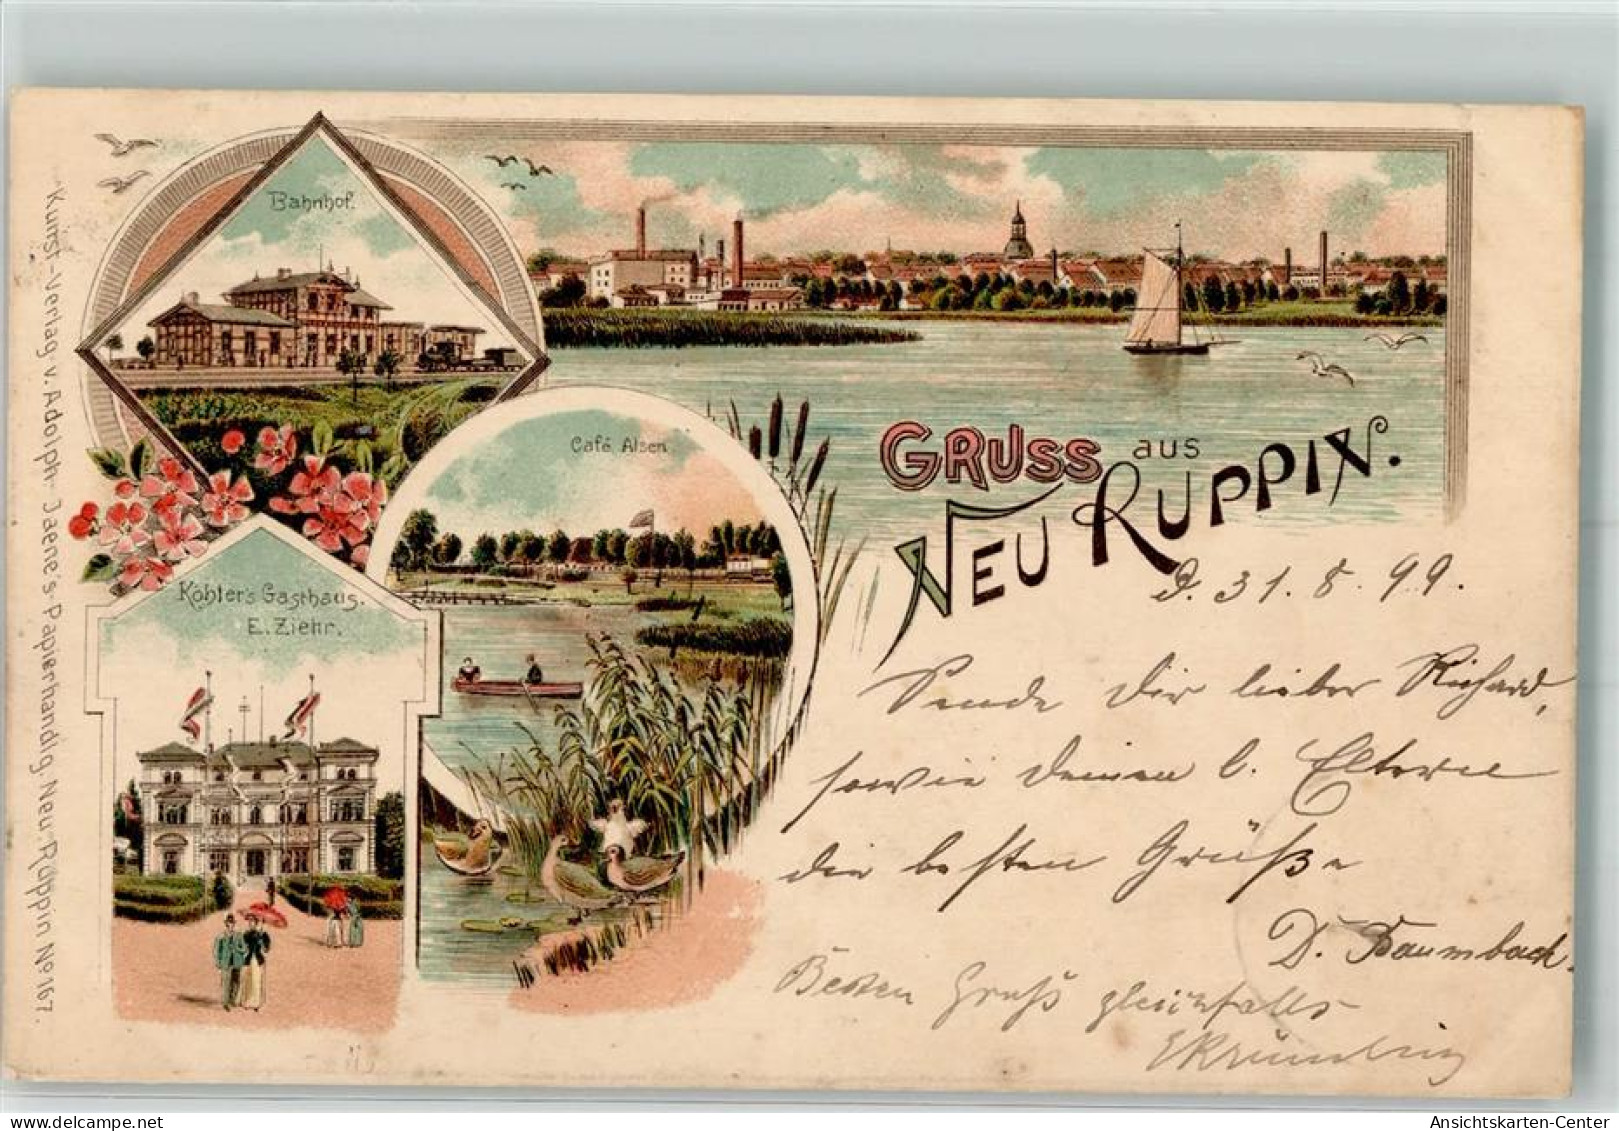 Bahnhof.
GRUSS aus
NEU RUPPIN.
Café Alsen
Köhler's Gasthaus.
E. Ziehr.
Kunst-Verlag v. Adolph Jaene's Papierhandlg. Neu-Ruppin No 167.
D. 31. 8. 99.
Sende Dir lieber Richard,
sowie Deinen l. Eltern
die besten Grüße
D. Baumbach.
Besten Gruß gleichfalls
AnsichtsKarten-Center